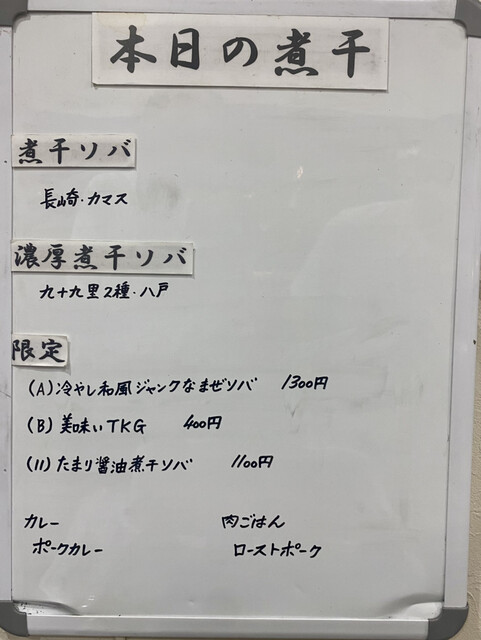 本日の煮干
煮干ソバ
長崎・カマス
濃厚煮干ソバ
九十九里2種・八戸
限定
(A)冷やし和風ジャンクなまぜソバ 1300円
(B)美味いTKG 400円
(11)たまり醤油煮干ソバ 1100円
カレー 肉ごはん
ポークカレー ローストポーク